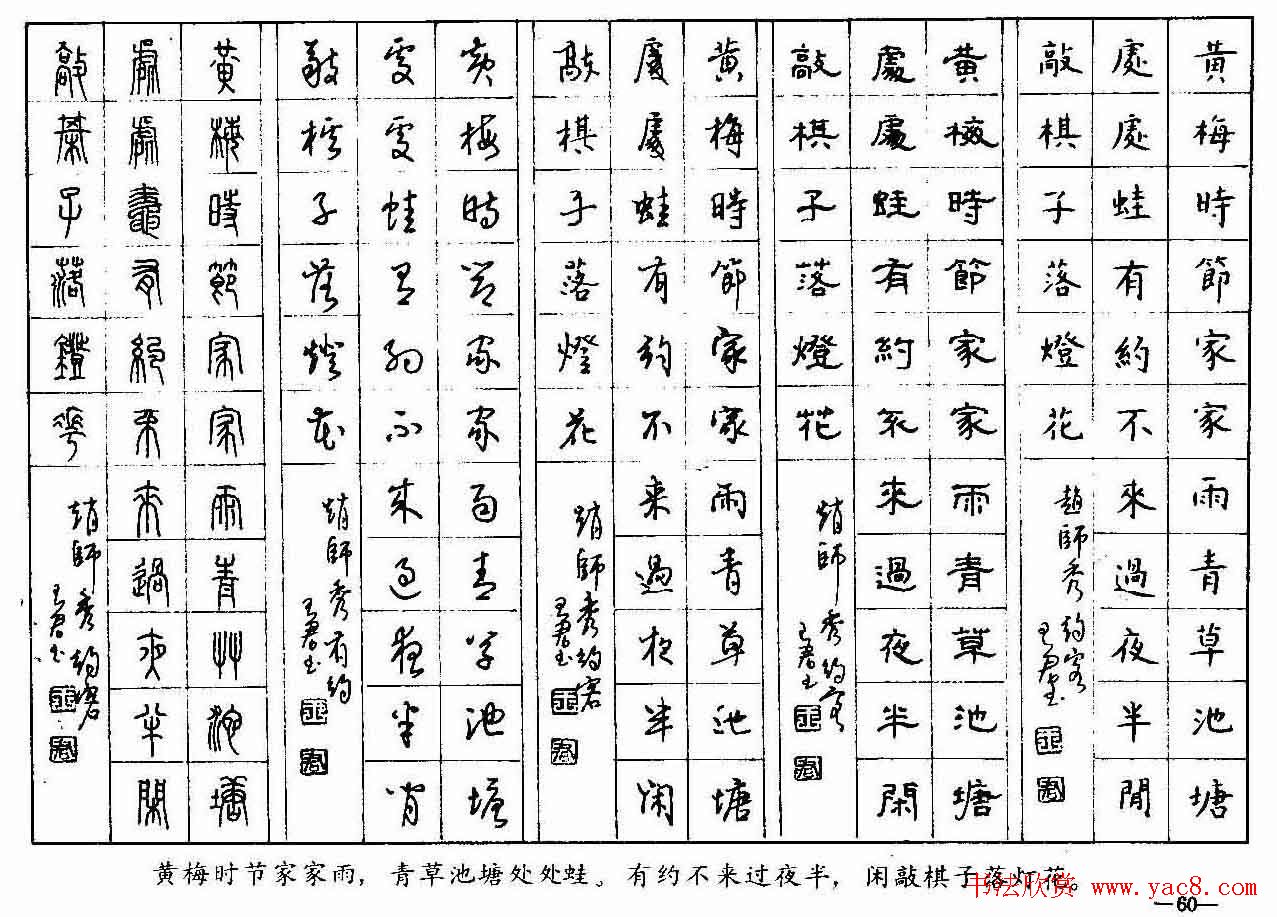 黃梅時節家家雨青草池塘
處處蛙有約不來過夜半閒
敲棋子落燈花
趙師秀約客
王君書
黃梅時節家家雨青草池塘
處處蛙有約不來過夜半閑
敲棋子落燈花
趙師秀約客
王君書
黃梅時節家家雨青草池塘
處處蛙有約不來過夜半閑
敲棋子落燈花
趙師秀約客
王君書
黃梅時節家家雨青草池塘
處處蛙有約不來過夜半閑
敲棋子落燈花
趙師秀有約
王君書
黃梅時節家家雨青艸池塘
處處鼃有約不來過夜半閑
敲棊子落鐙華
趙師秀約客
王君書
黄梅时节家家雨，青草池塘处处蛙。有约不来过夜半，闲敲棋子落灯花。
书法欣赏 www.yac8.com
—60—